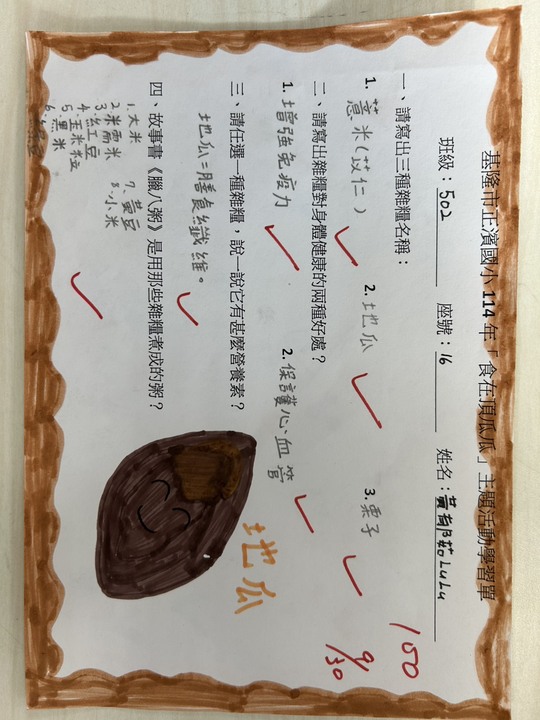 基隆市正濱國小 114 年「食在頂瓜瓜」主題活動學習單
班級：502 座號：16 姓名：黃郁茹LuLu
一、請寫出三種雜糧名稱：
1. 薏米(苡仁) 2. 地瓜 3. 栗子
二、請寫出雜糧對身體健康的兩種好處？
1. 增強免疫力 2. 保護心血管
三、請任選一種雜糧，說一說它有甚麼營養素？
地瓜：膳食纖維。
四、故事書《臘八粥》是用那些雜糧煮成的粥？
1.大米
2.米需米 7.黃豆
3.紅豆 8.小米
4.
5.玉米粒
6.黑米
地瓜
100
9/30